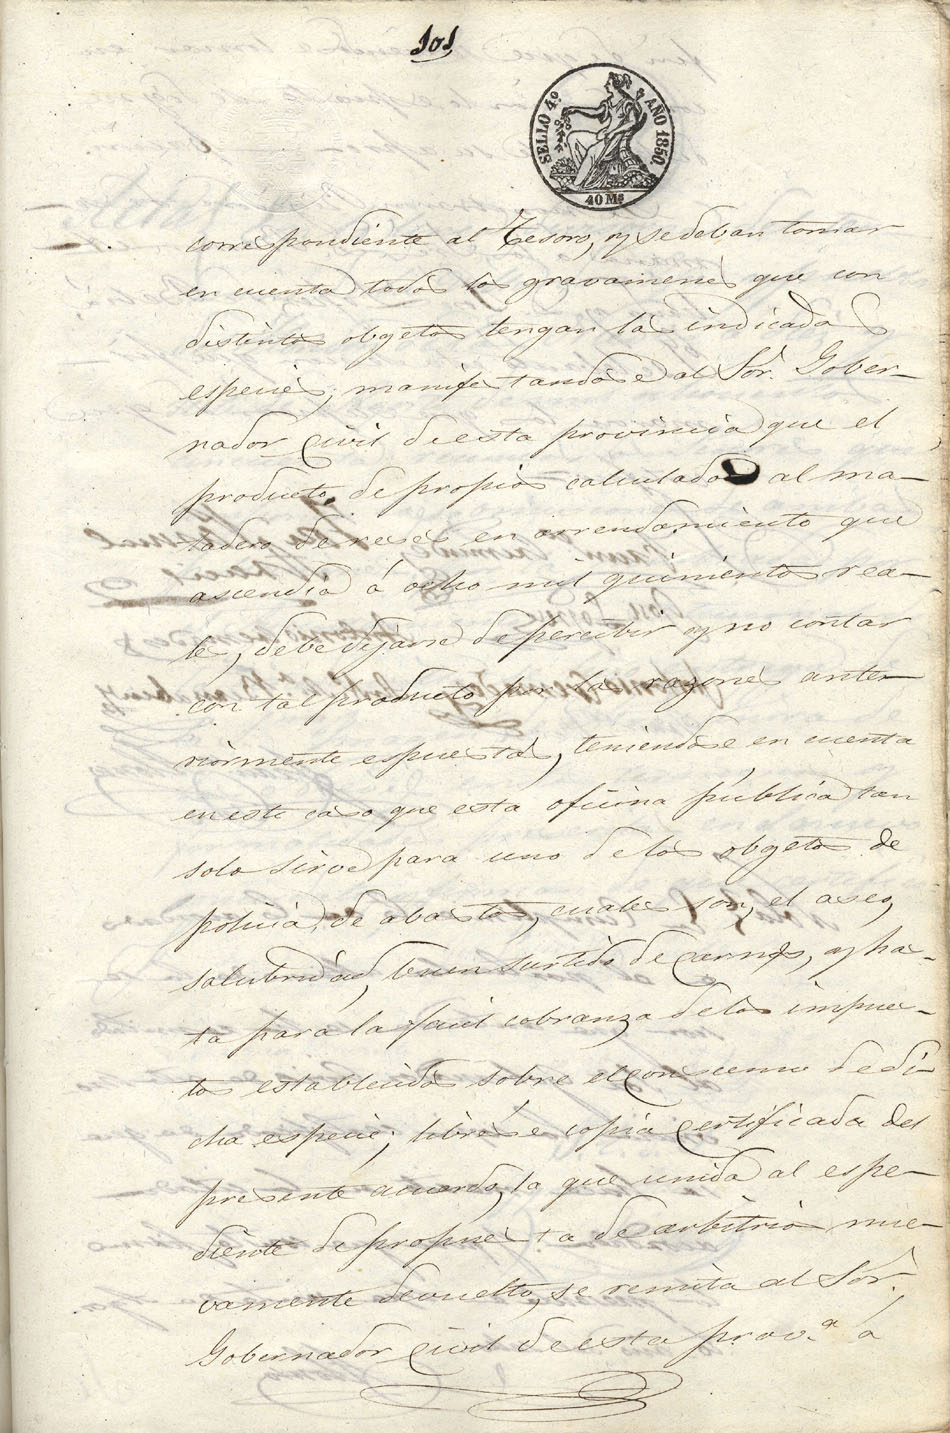 101
SELLO 4º AÑO 1850.
40 Ms
correspondiente al Tesoro, y se deban tomar
en cuenta todos los gravamenes que con
distintos obgetos tengan las indicadas
especies; manifestandose al Sór. Gober-
nador Civil de esta provincia que el
producto de propios calculado al ma-
tadero de reses en arrendamiento que
ascendia á ocho mil quinientos rea-
les, debe dejarse de percibir y no contar
con tal producto por las razones ante-
riormente espuestas, teniendose en cuenta
en este caso que esta oficina pública tan
solo sirve para uno de los obgetos de
policia de abastos, cuales son, el aseo,
salubridad, buen surtido de carnes, y has-
ta para la facil cobranza de los impues-
tos establecidos sobre el consumo de di-
cha especie; librese copia certificada del
presente acuerdo, la que unida al espe-
diente de propuesta de arbitrios nue-
vamente devuelto, se remita al Sór.
Gobernador Civil de esta prov.ª á